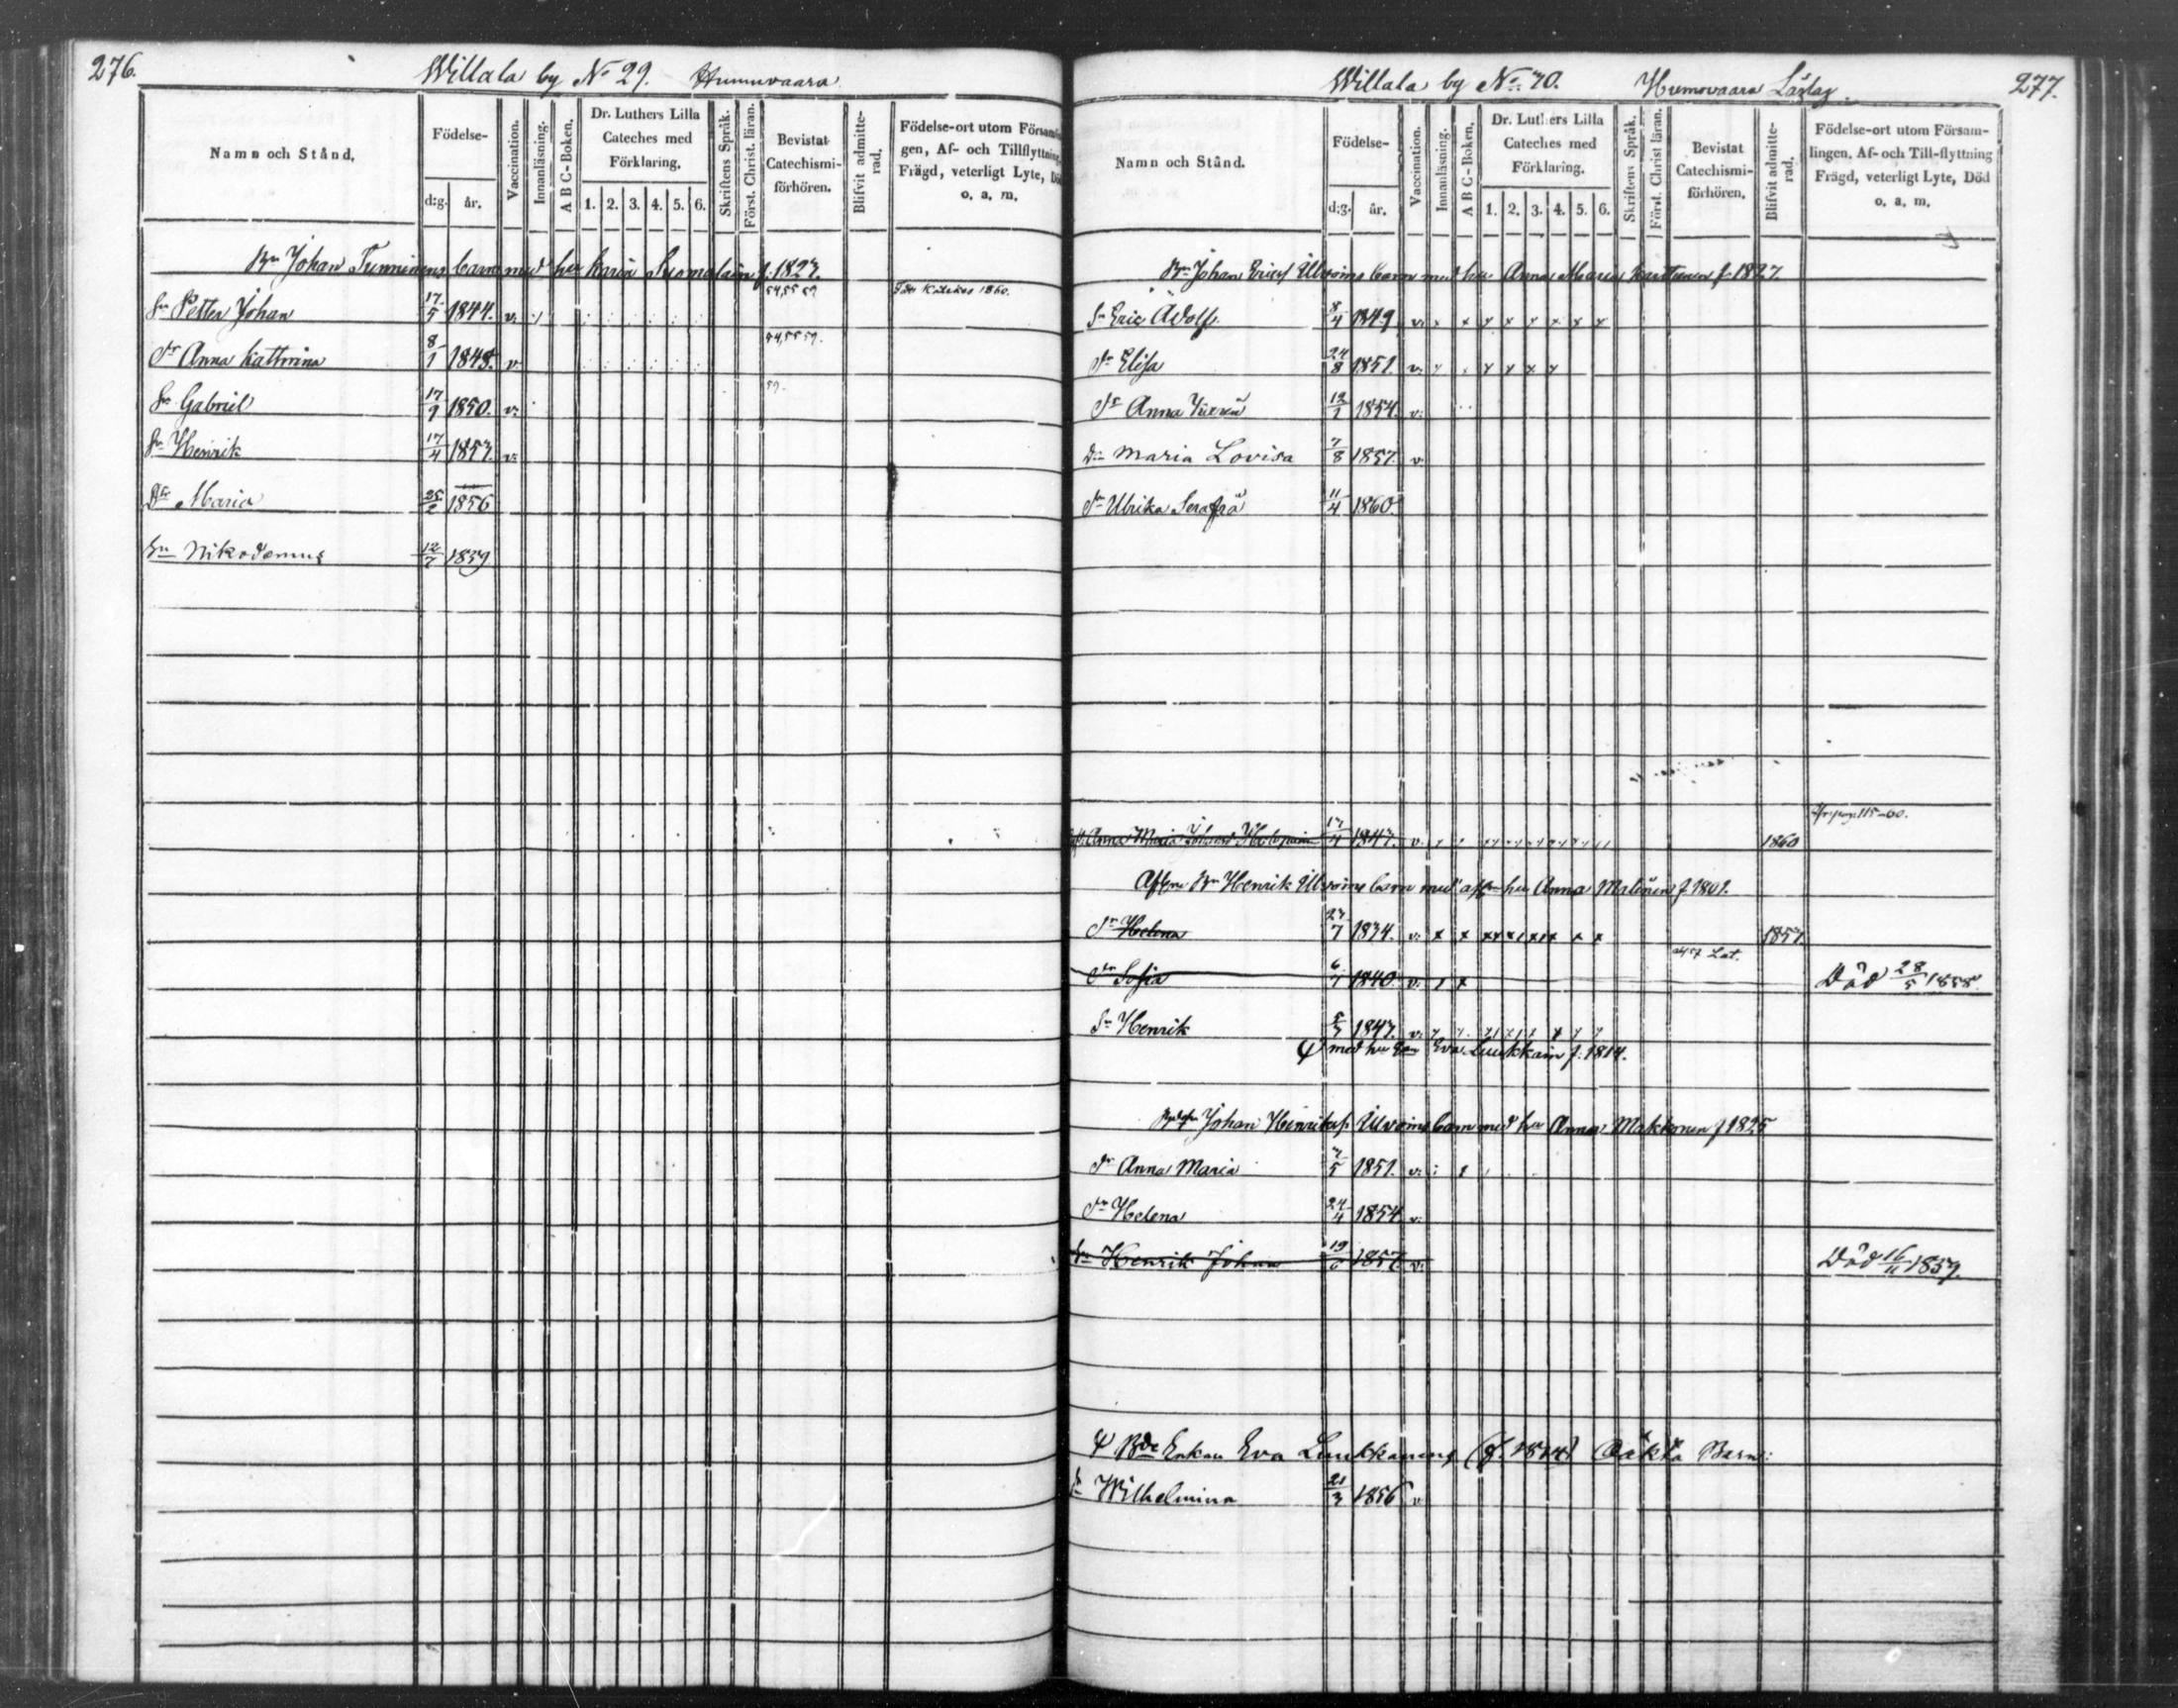 276.
Willala by No 29. Humuvaara
Namn och Stånd.
Födelse-
d:g. år.
Vaccination.
Innanläsning.
A B C-Boken.
Dr. Luthers Lilla Cateches med Förklaring.
1. 2. 3. 4. 5. 6.
Skriftens Språk.
Först. Christ. läran.
Bevistat Catechismi-förhören.
Blifvit admitte-rad.
Födelse-ort utom Församlin
gen, Af- och Tillflyttning,
Frägd, veterligt Lyte, Död
o. a. m.
Bn Johan Tunninens barn med hu Karin Suomalain f. 1823.
Sn Petter Johan 17/5 1844. v. 54,55 59
Dr Anna Kathrina 8/1 1848. v. 54,55 59.
Sn Gabriel 17/9 1850. v. 59.
Sn Henrik 17/4 1853. v.
Dr Maria 25/2 1856
Sn Nikodemus 12/7 1859
277.
Willala by No 70. Humovaara Läslag.
Namn och Stånd.
Födelse-
d:g. år.
Vaccination.
Innanläsning.
A B C-Boken.
Dr. Luthers Lilla Cateches med Förklaring.
1. 2. 3. 4. 5. 6.
Skriftens Språk.
Först. Christ läran.
Bevistat Catechismi-förhören.
Blifvit admitte-rad.
Födelse-ort utom Försam-
lingen, Af- och Till-flyttning
Frägd, veterligt Lyte, Död
o. a. m.
Bn Johan Ericss Ilvoins barn med hu Anna Maria Karttunen f. 1827
Sn Eric Adolf 8/4 1849 v. x x x x x x x x
Dr Elisa 24/8 1851. v. x x x x x
Dr Anna 12/1 1854. v.
Dr Maria Lovisa 7/8 1857. v.
Dr Ulrika Serafia 11/4 1860.
Anna Maria 17/4 1847. v. 1860
Afl. Bn Henrik Ilvoins barn med afl. hu Anna Malinen f. 1801.
Dr Helena 23/7 1834. v. x x 1857
Dr Sofia 6/7 1840 v. x x Död 28/5 1858
Sn Henrik 5/3 1847. v.
med hu Eva Luukkain f. 1814.
Johan Henrikss Ilvoins barn med hu Anna Makkonen f 1825
Dr Anna Maria 7/5 1851. v.
Dr Helena 24/4 1854 v.
Sn Henrik Johan 19/6 1857 v. Död 16/11 1859.
Bde Enkan Eva Luukkanens (f. 1814) Oäkta Barn:
Wilhelmina 21/3 1856 v